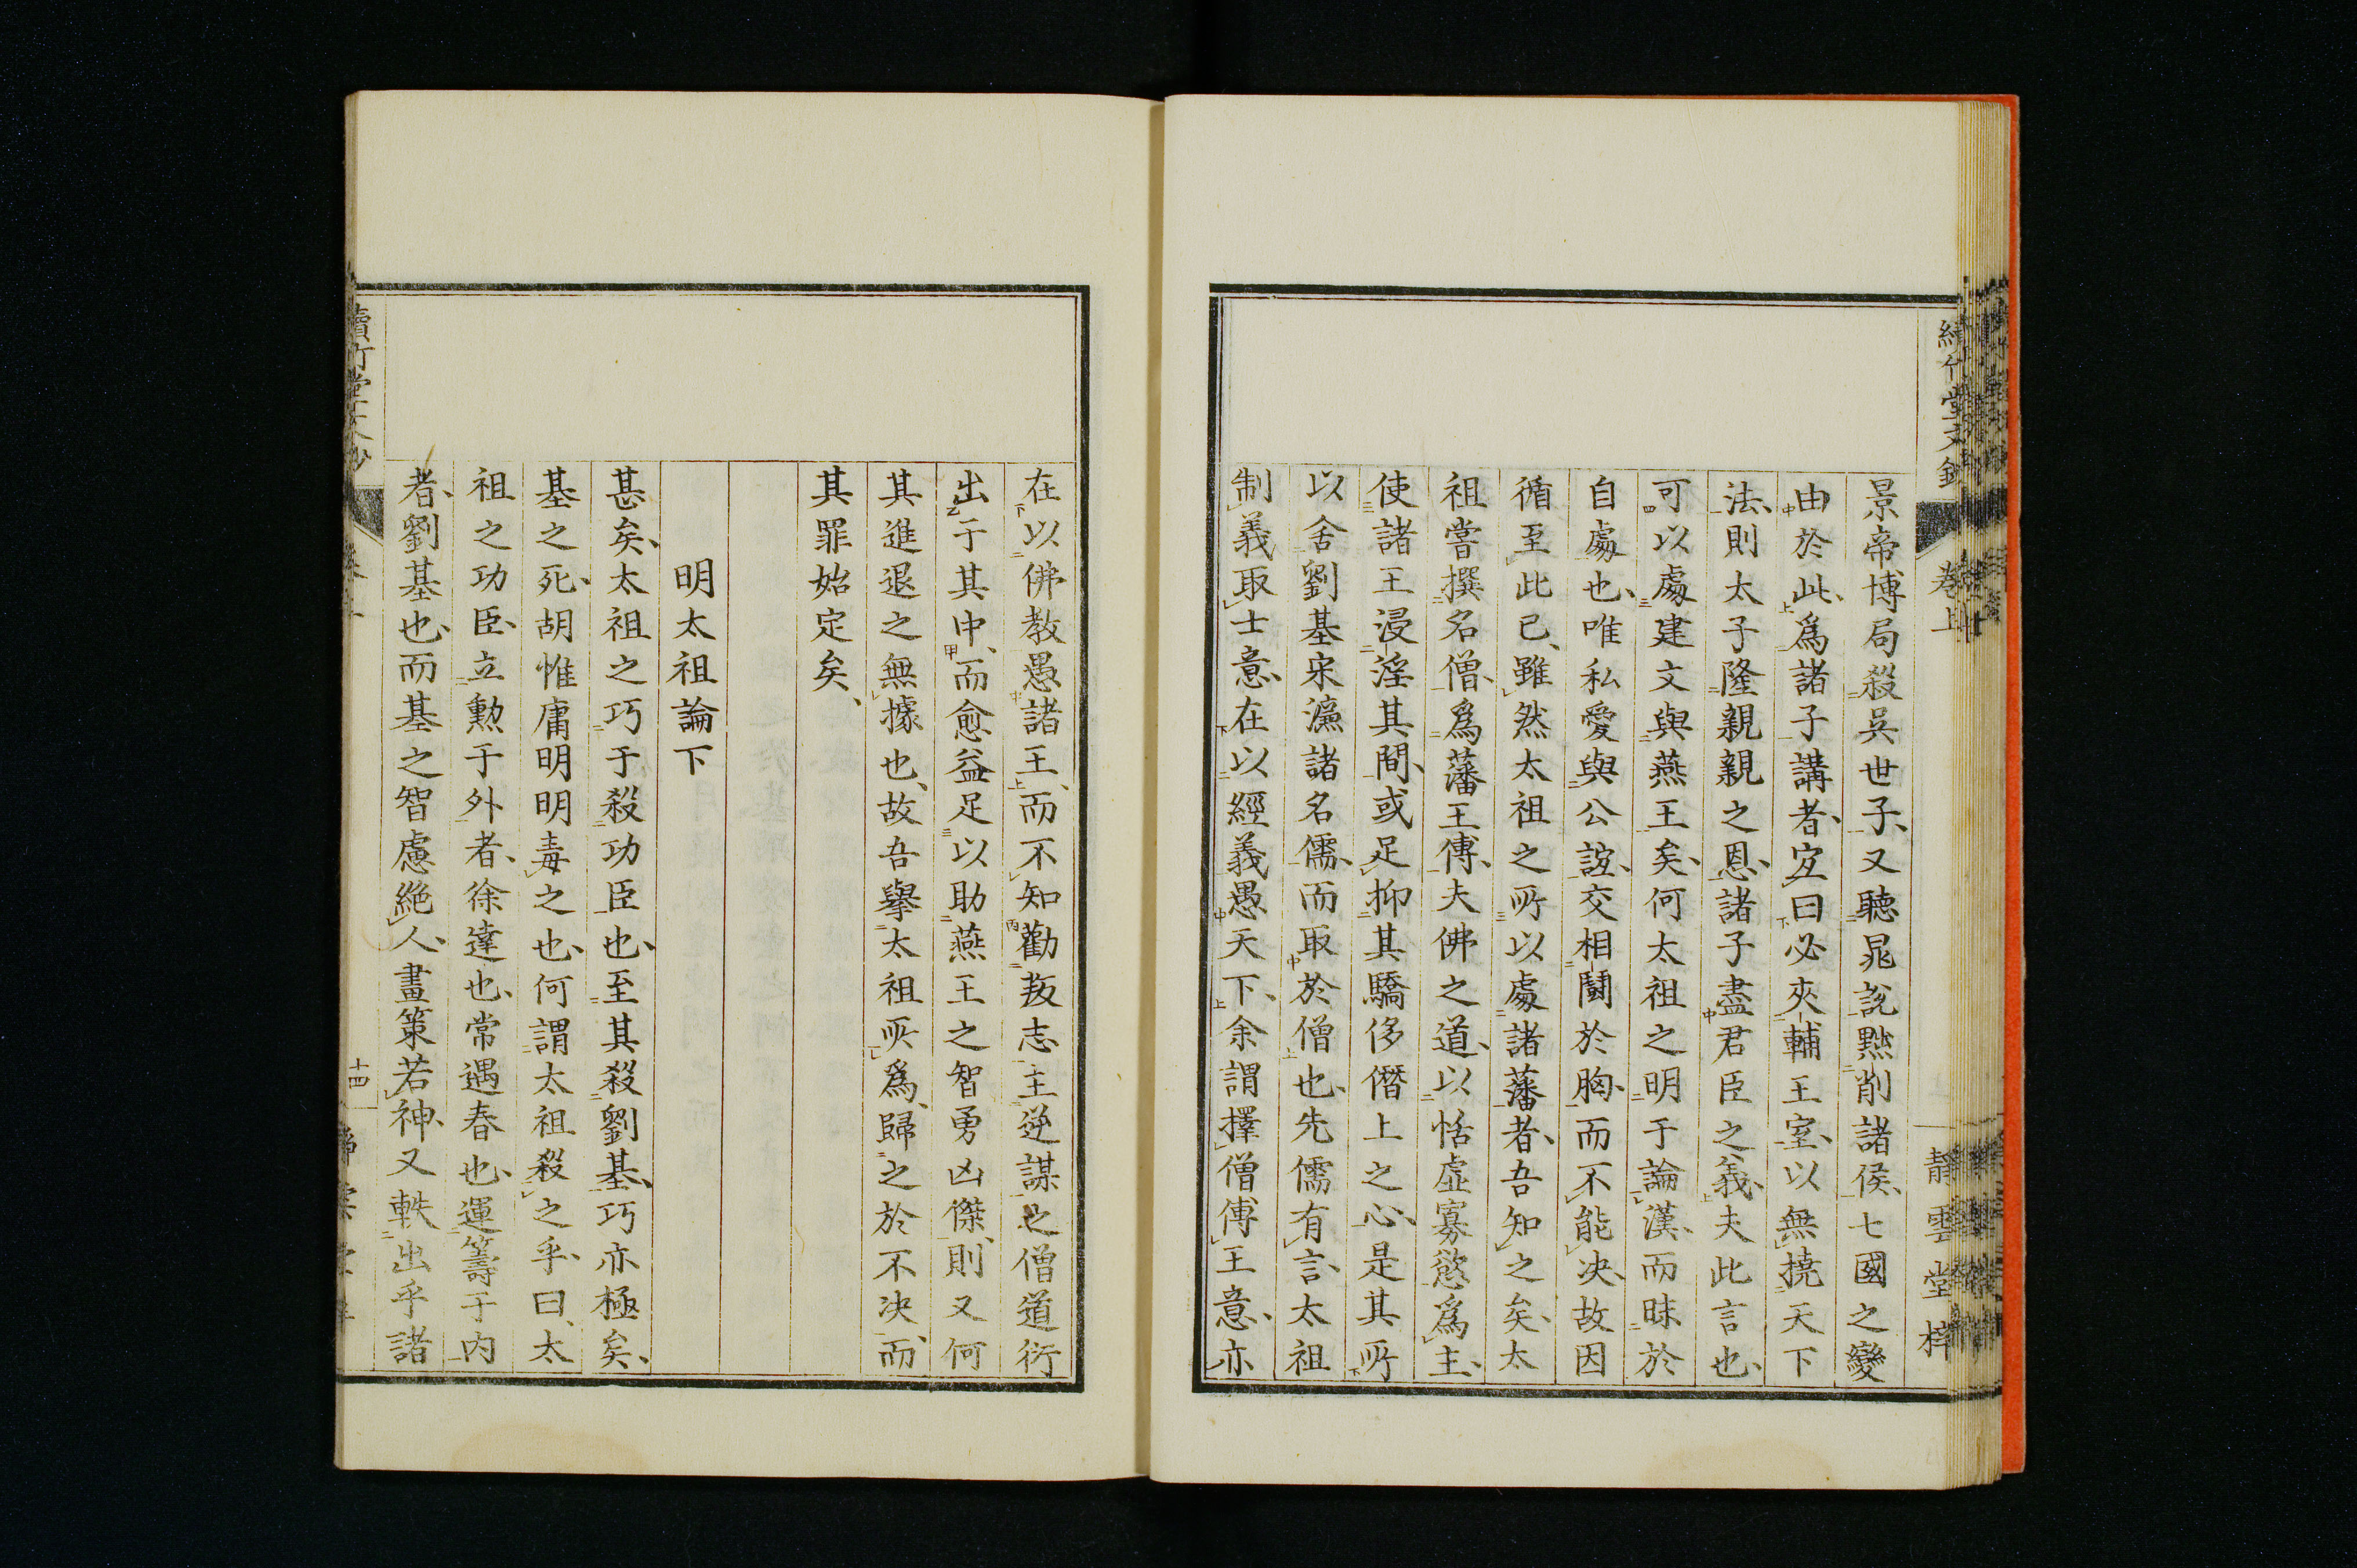 景帝博局殺吳世子、又聽鼂說黜削諸侯、七國之變
由於此、爲諸子講者、宜曰必夾輔王室、以無撓天下
法、則太子隆親親之恩、諸子盡君臣之義、夫此言也、
可以處建文與燕王矣、何太祖之明于論漢、而昧於
自處也、唯私愛與公誼、交相鬪於胸、而不能决、故因
循至此已、雖然太祖之所以處諸藩者、吾知之矣、太
祖嘗撰名僧、爲藩王傅、夫佛之道、以恬虛寡慾爲主、
使諸王浸淫其間、或足抑其驕侈僭上之心、是其所
以舍劉基宋濂諸名儒、而取於僧也、先儒有言、太祖
制義取士意、在以經義愚天下、余謂擇僧傅王意、亦
在以佛教愚諸王、而不知勸叛志主逆謀之僧道衍
出于其中、而愈益足以助燕王之智勇凶傑、則又何
其進退之無據也、故吾舉太祖所爲、歸之於不决、而
其罪始定矣、
明太祖論下
甚矣、太祖之巧于殺功臣也、至其殺劉基、巧亦極矣、
基之死、胡惟庸明明毒之也、何謂太祖殺之乎、曰、太
祖之功臣、立勲于外者、徐達也、常遇春也、運籌于内
者、劉基也、而基之智慮絶人、畫策若神、又軼出乎諸
卷上
靜雲堂梓
十四